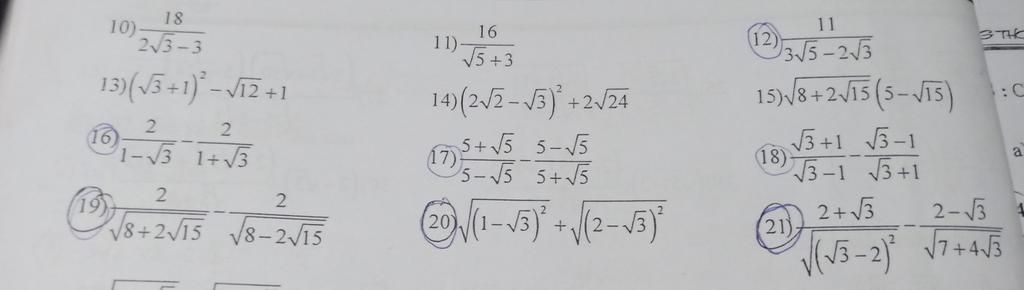 10) 18/(2√3−3)   11) 16/(√5+3)   12) 11/(3√5−2√3)
13) (√3+1)² − √12 + 1   14) (2√2−√3)² + 2√24   15) √(8+2√15) (5−√15)
16) 2/(1−√3) − 2/(1+√3)   17) (5+√5)/(5−√5) − (5−√5)/(5+√5)   18) (√3+1)/(√3−1) − (√3−1)/(√3+1)
19) 2/√(8+2√15) − 2/√(8−2√15)   20) √((1−√3)²) + √((2−√3)²)   21) (2+√3)/√((√3−2)²) − (2−√3)/√(7+4√3)